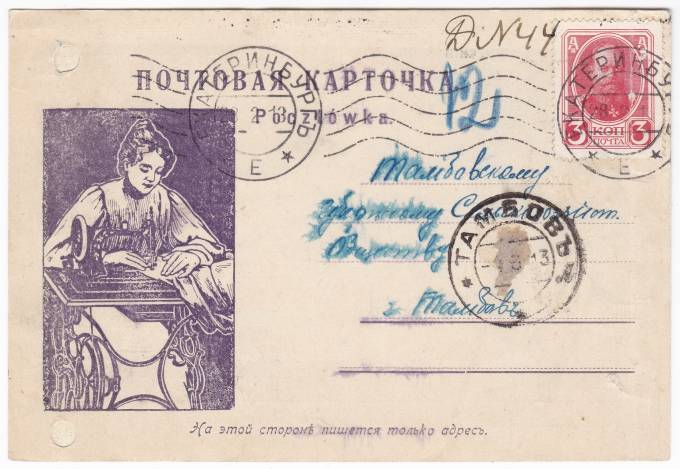 Д N 44
ПОЧТОВАЯ КАРТОЧКА.
Pocztówka.
12
ЕКАТЕРИНБУРГЪ
Е
3 КОП 3
ПОЧТА
ЕКАТЕРИНБУРГЪ
Е
Тамбовскому
ТАМБОВЪ
г Тамбовъ
На этой сторонѣ пишется только адресъ.